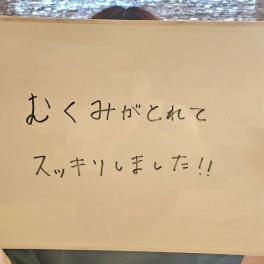 むくみがとれて
スッキリしました!!